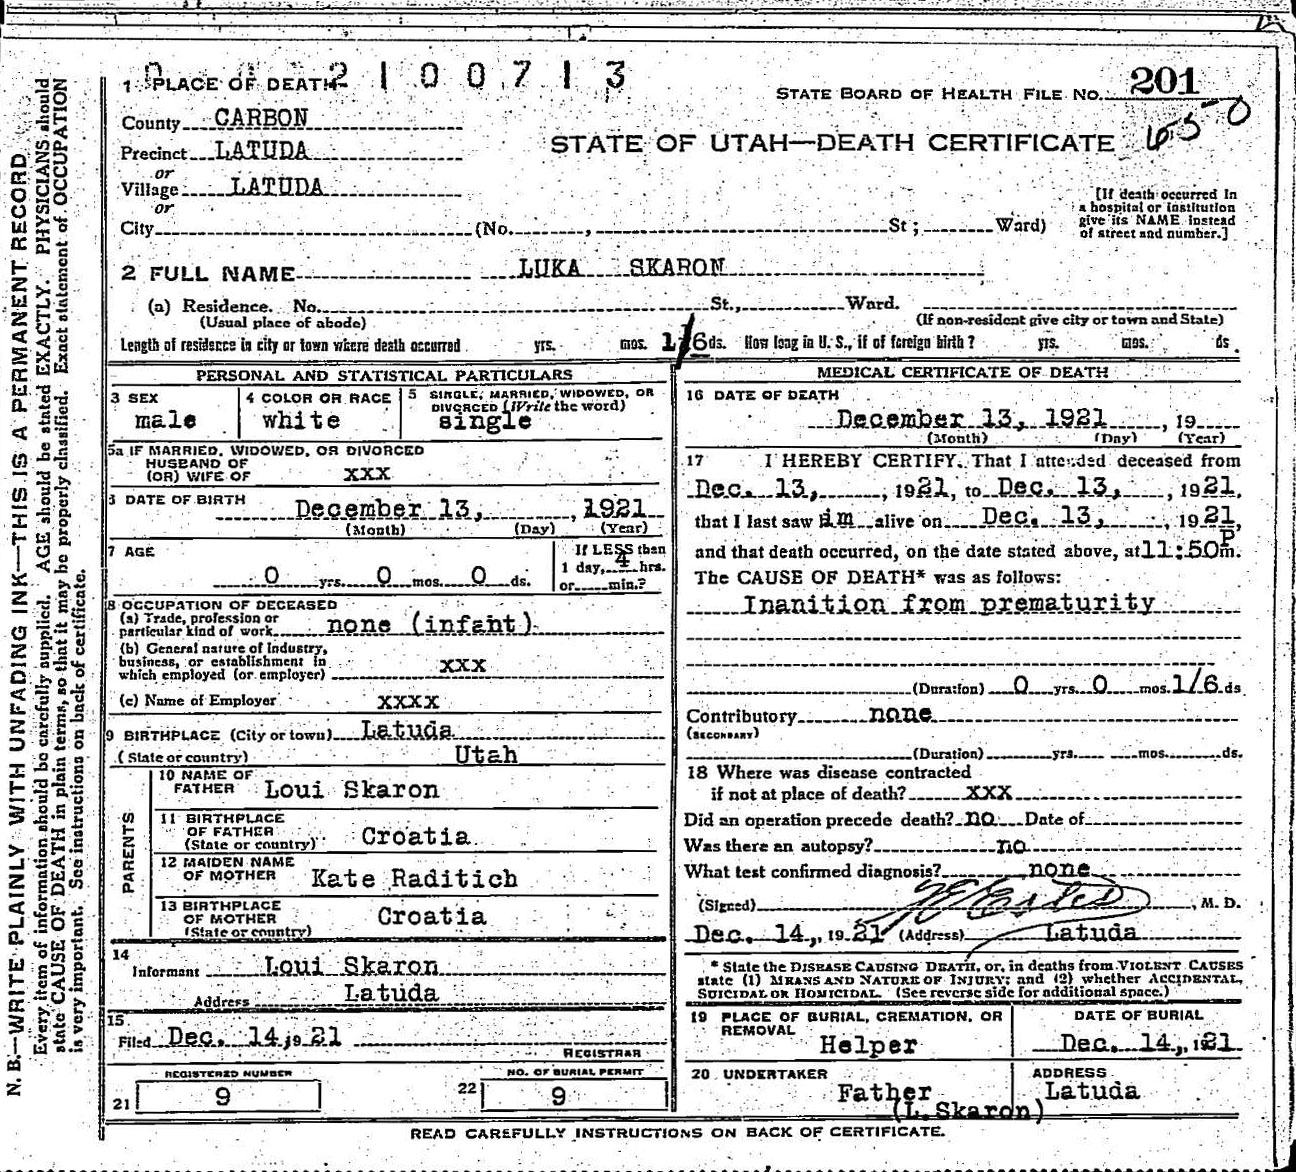 0 2 1 0 0 7 1 3
1 PLACE OF DEATH
STATE BOARD OF HEALTH FILE NO. 201
County CARBON
650
STATE OF UTAH—DEATH CERTIFICATE
Precinct LATUDA
or
Village LATUDA
or
City (No. , St; Ward)
[If death occurred in
a hospital or institution
give its NAME instead
of street and number.]
2 FULL NAME LUKA SKARON
(a) Residence. No. St., Ward.
(Usual place of abode) (If non-resident give city or town and State)
Length of residence in city or town where death occurred yrs. mos. 1/6 ds. How long in U. S., if of foreign birth? yrs. mos. ds.
PERSONAL AND STATISTICAL PARTICULARS
3 SEX male
4 COLOR OR RACE white
5 SINGLE, MARRIED, WIDOWED, OR
DIVORCED (Write the word)
single
5a IF MARRIED, WIDOWED, OR DIVORCED
HUSBAND OF
(OR) WIFE OF xxx
6 DATE OF BIRTH December 13, , 1921
(Month) (Day) (Year)
7 AGE
0 yrs. 0 mos. 0 ds.
If LESS than
1 day, 4 hrs.
or min.?
8 OCCUPATION OF DECEASED
(a) Trade, profession or
particular kind of work none (infant)
(b) General nature of Industry,
business, or establishment in
which employed (or employer) xxx
(c) Name of Employer xxxx
9 BIRTHPLACE (City or town) Latuda
(State or country) Utah
PARENTS
10 NAME OF
FATHER Loui Skaron
11 BIRTHPLACE
OF FATHER
(State or country) Croatia
12 MAIDEN NAME
OF MOTHER Kate Raditich
13 BIRTHPLACE
OF MOTHER
(State or country) Croatia
14
Informant Loui Skaron
Address Latuda
15
Filed Dec. 14, 19 21
REGISTRAR
REGISTERED NUMBER
21 9
NO. OF BURIAL PERMIT
22 9
MEDICAL CERTIFICATE OF DEATH
16 DATE OF DEATH
December 13, 1921 , 19
(Month) (Day) (Year)
17 I HEREBY CERTIFY, That I attended deceased from
Dec. 13, , 1921, to Dec. 13, , 1921,
that I last saw im alive on Dec. 13, , 1921,
and that death occurred, on the date stated above, at 11:50 P m.
The CAUSE OF DEATH* was as follows:
Inanition from prematurity
(Duration) 0 yrs. 0 mos. 1/6 ds
Contributory none
(SECONDARY)
(Duration) yrs. mos. ds.
18 Where was disease contracted
if not at place of death? xxx
Did an operation precede death? no Date of
Was there an autopsy? no
What test confirmed diagnosis? none
(Signed) , M. D.
Dec. 14, , 19 21 (Address) Latuda
* State the DISEASE CAUSING DEATH, or, in deaths from VIOLENT CAUSES
state (1) MEANS AND NATURE OF INJURY; and (2) whether ACCIDENTAL,
SUICIDAL OR HOMICIDAL. (See reverse side for additional space.)
19 PLACE OF BURIAL, CREMATION, OR
REMOVAL
Helper
DATE OF BURIAL
Dec. 14, , 1921
20 UNDERTAKER
Father
(L. Skaron)
ADDRESS
Latuda
READ CAREFULLY INSTRUCTIONS ON BACK OF CERTIFICATE.
N. B.—WRITE PLAINLY WITH UNFADING INK—THIS IS A PERMANENT RECORD
Every item of information should be carefully supplied. AGE should be stated EXACTLY. PHYSICIANS should
state CAUSE OF DEATH in plain terms, so that it may be properly classified. Exact statement of OCCUPATION
is very important. See instructions on back of certificate.